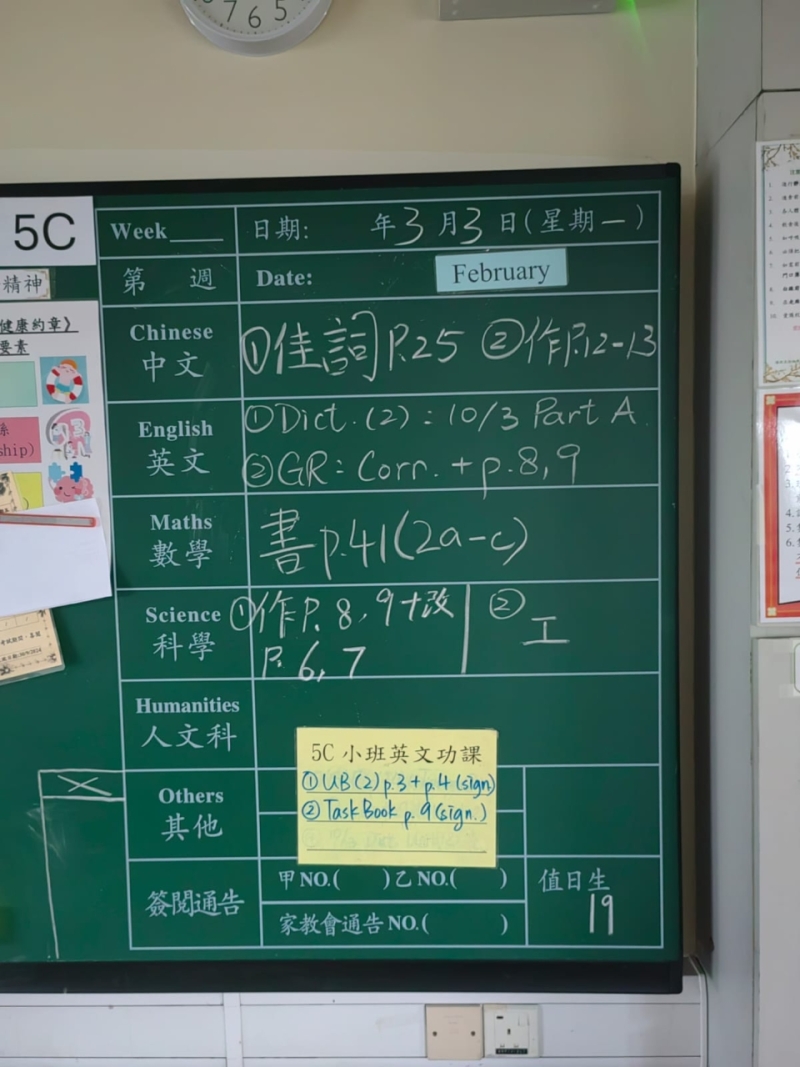 7 6 5
5C
精神
健康約章》
要素
係
ship)
Week____ 日期: 年3月3日(星期一)
第 週 Date: February
Chinese
中文
①佳詞P.25 ②作P.12-13
English
英文
①Dict.(2): 10/3 Part A.
②GR: Corr. + p.8,9
Maths
數學
書p.41(2a-c)
Science
科學
①作P. 8, 9+改
P. 6, 7
② 工
Humanities
人文科
5C 小班英文功課
①UB(2) p.3 + p.4 (sign)
②TaskBook p.9 (sign.)
Others
其他
簽閱通告
甲NO.( )乙NO.( )
家教會通告NO.( )
值日生
19